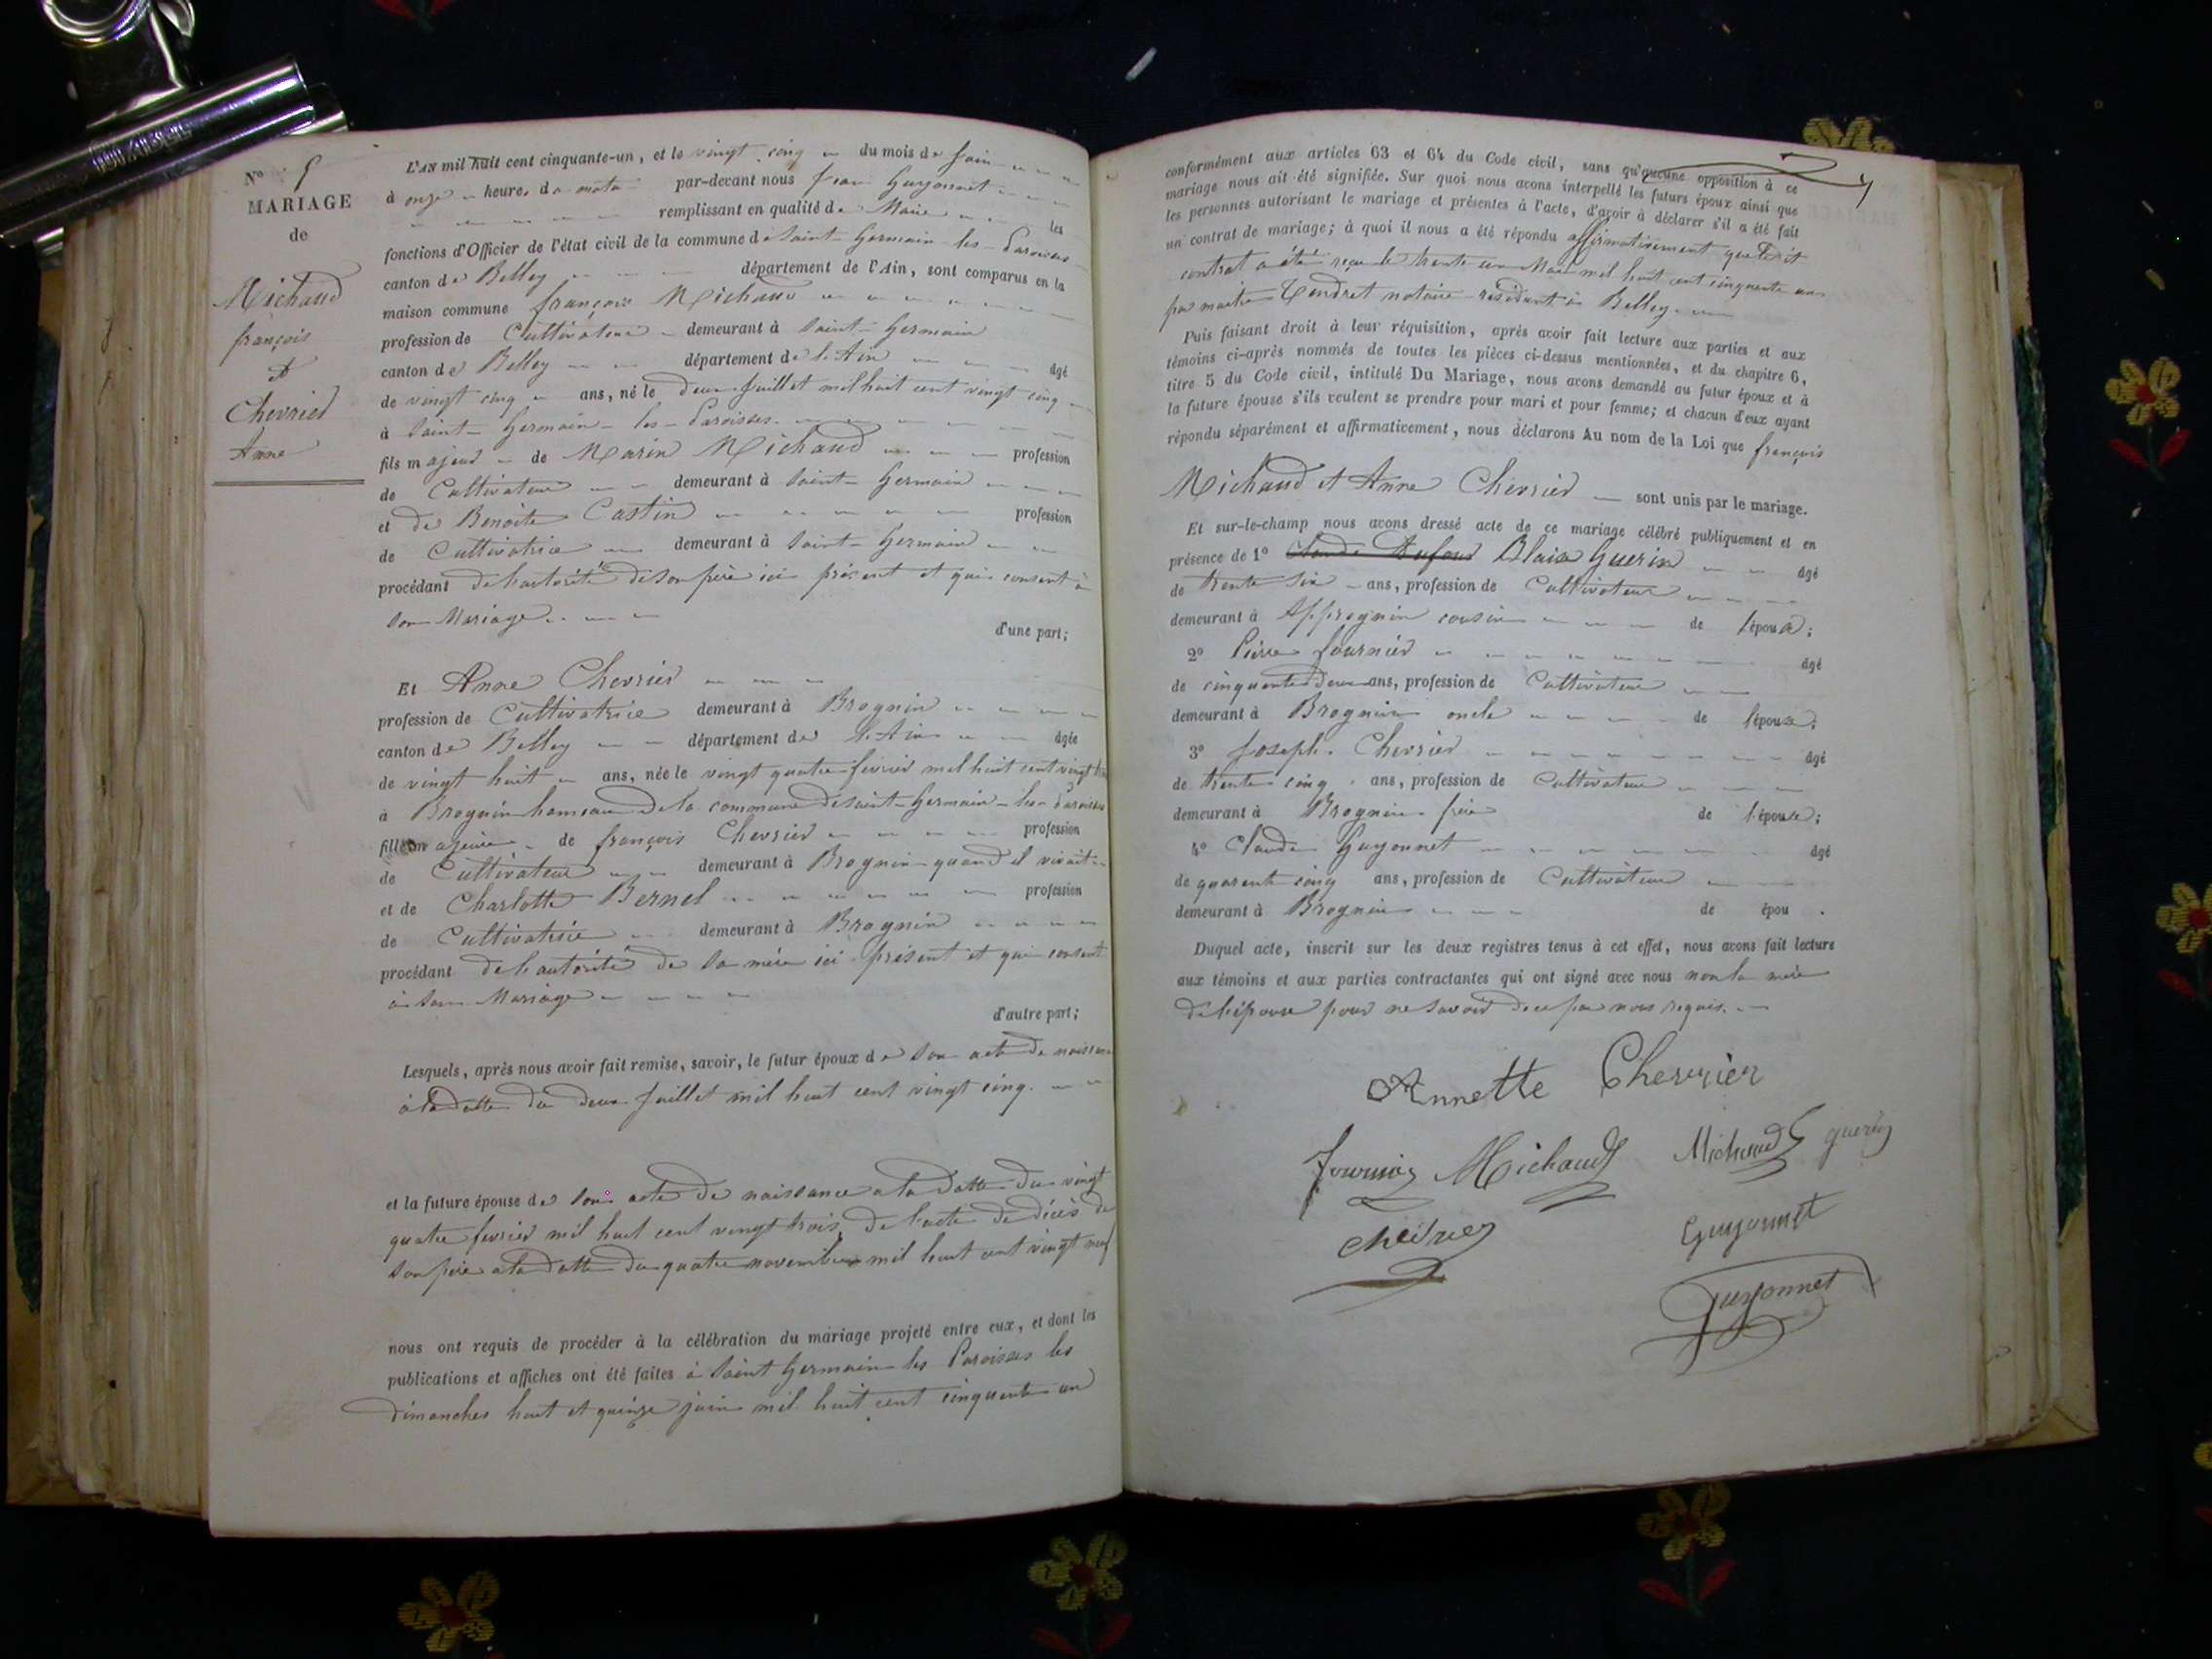 N° 5
MARIAGE
de
Michaud
françois
et
Chevrier
Anne
L'AN mil huit cent cinquante-un, et le vingt cinq du mois de Juin
à onze heures du matin par-devant nous Jean Guyonnet
remplissant en qualité de Maire les
fonctions d'Officier de l'état civil de la commune de Saint-Germain-les-Paroisses
canton de Belley département de l'Ain, sont comparus en la
maison commune françois Michaud
profession de Cultivateur demeurant à Saint-Germain
canton de Belley département de l'Ain âgé
de vingt cinq ans, né le deux Juillet mil huit cent vingt cinq
à Saint-Germain-les-Paroisses
fils majeur de Marin Michaud profession
de Cultivateur demeurant à Saint-Germain
et de Benoite Castin profession
de Cultivatrice demeurant à Saint-Germain
procédant de l'autorité de son père ici présent et qui consent à
son Mariage
d'une part;
Et Anne Chevrier
profession de Cultivatrice demeurant à Brognin
canton de Belley département de l'Ain âgée
de vingt huit ans, née le vingt quatre fevrier mil huit cent vingt trois
à Brognin hameau de la commune de Saint-Germain-les-Paroisses
fille majeure de françois Chevrier profession
de Cultivateur demeurant à Brognin quand il vivait
et de Charlotte Bernel profession
de Cultivatrice demeurant à Brognin
procédant de l'autorité de sa mère ici présent et qui consent
à son Mariage
d'autre part;
Lesquels, après nous avoir fait remise, savoir, le futur époux de son acte de naissance
à la datte du deux Juillet mil huit cent vingt cinq.
et la future épouse de son acte de naissance a la datte du vingt
quatre fevrier mil huit cent vingt trois, de l'acte de décès de
son père a la datte du quatre novembre mil huit cent vingt neuf
nous ont requis de procéder à la célébration du mariage projeté entre eux, et dont les
publications et affiches ont été faites à Saint Germain les Paroisses les
dimanches huit et quinze juin mil huit cent cinquante un
conformément aux articles 63 et 64 du Code civil, sans qu'aucune opposition à ce
mariage nous ait été signifiée. Sur quoi nous avons interpellé les futurs époux ainsi que
les personnes autorisant le mariage et présentes à l'acte, d'avoir à déclarer s'il a été fait
un contrat de mariage; à quoi il nous a été répondu affirmativement que le dit
contrat a été reçu le trente un Mai mil huit cent cinquante un
par maitre Tendret notaire résidant à Belley.
Puis faisant droit à leur réquisition, après avoir fait lecture aux parties et aux
témoins ci-après nommés de toutes les pièces ci-dessus mentionnées, et du chapitre 6,
titre 5 du Code civil, intitulé Du Mariage, nous avons demandé au futur époux et à
la future épouse s'ils veulent se prendre pour mari et pour femme; et chacun d'eux ayant
répondu séparément et affirmativement, nous déclarons Au nom de la Loi que françois
Michaud et Anne Chevrier sont unis par le mariage.
Et sur-le-champ nous avons dressé acte de ce mariage célébré publiquement et en
présence de 1° Claude Dufour Blaise Guerin âgé
de trente six ans, profession de Cultivateur
demeurant à Appregnin cousin de l'épouse;
2° Pierre fournier âgé
de cinquante deux ans, profession de Cultivateur
demeurant à Brognin oncle de l'épouse;
3° Joseph Chevrier âgé
de trente cinq ans, profession de Cultivateur
demeurant à Brognin frère de l'épouse;
4° Claude Guyonnet âgé
de quarente cinq ans, profession de Cultivateur
demeurant à Brognin de épou .
Duquel acte, inscrit sur les deux registres tenus à cet effet, nous avons fait lecture
aux témoins et aux parties contractantes qui ont signé avec nous non la mère
de l'épouse pour ne savoir de ce par nous requis.
Annette Chevrier
fournier Michaud Michaud guerin
chevrier Guyonnet
guyonnet